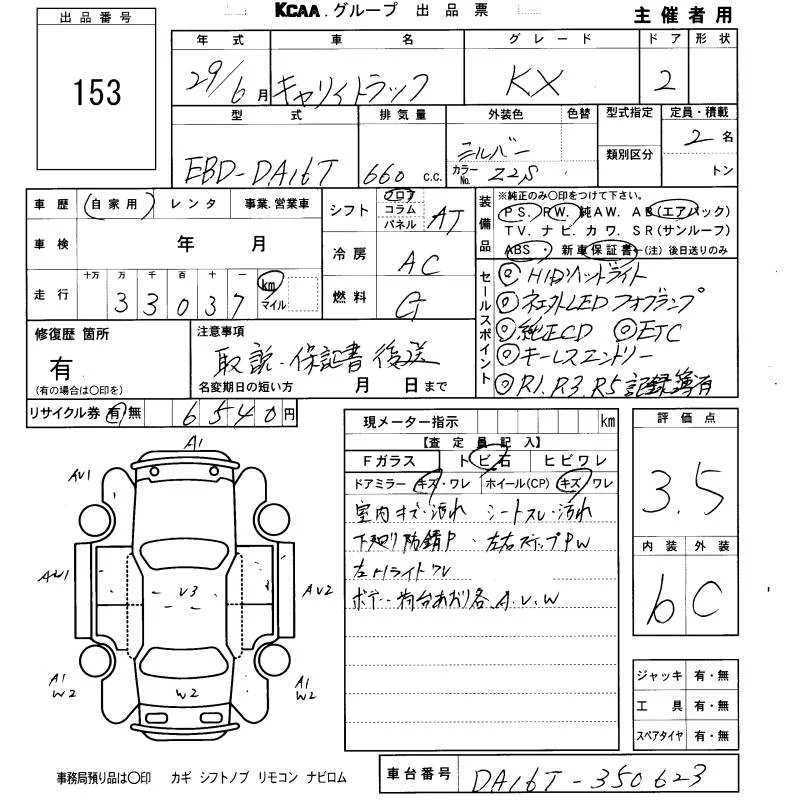 KCAA.グループ 出品票
主催者用
出品番号
153
年式 車名 グレード ドア 形状
29/6月 キャリイトラック KX 2
型式 排気量 外装色 色替 型式指定 定員・積載
EBD-DA16T 660 c.c. シルバー カラーNo. Z2S 類別区分 2名
トン
車歴 自家用 レンタ 事業.営業車
車検 年 月
走行 十万 万 千 百 十 一 km マイル
33037
シフト フロア コラム パネル AT
冷房 AC
燃料 G
装備品
※純正のみ〇印をつけて下さい。
PS. PW. 純AW. AB(エアバック)
TV. ナビ. カワ. SR(サンルーフ)
ABS ・ 新車保証書-(注) 後日送りのみ
セールスポイント
◎HIDヘッドライト
◎社外LEDフォグランプ
◎純正CD ◎ETC
◎キーレスエントリー
◎R1.R3.R5記録簿有
修復歴 箇所
有
(有の場合は〇印を)
注意事項
取説・保証書後送
名変期日の短い方 月 日まで
リサイクル券 有 無 6540円
現メーター指示 km
【査定員記入】
Fガラス トビ石 ヒビワレ
ドアミラー キズ・ワレ ホイール(CP) キズ/ワレ
室内キズ・汚れ シートスレ・汚れ
下廻り防錆P・左右ステップPW
左Hライトワレ
ボデー・荷台あおり各A.U.W
評価点
3.5
内装 外装
b C
A1
AU1
AU1
U3
AU2
A1
W2
W2
A1
W2
ジャッキ 有・無
工具 有・無
スペアタイヤ 有・無
事務局預り品は〇印 カギ シフトノブ リモコン ナビロム
車台番号 DA16T-350623